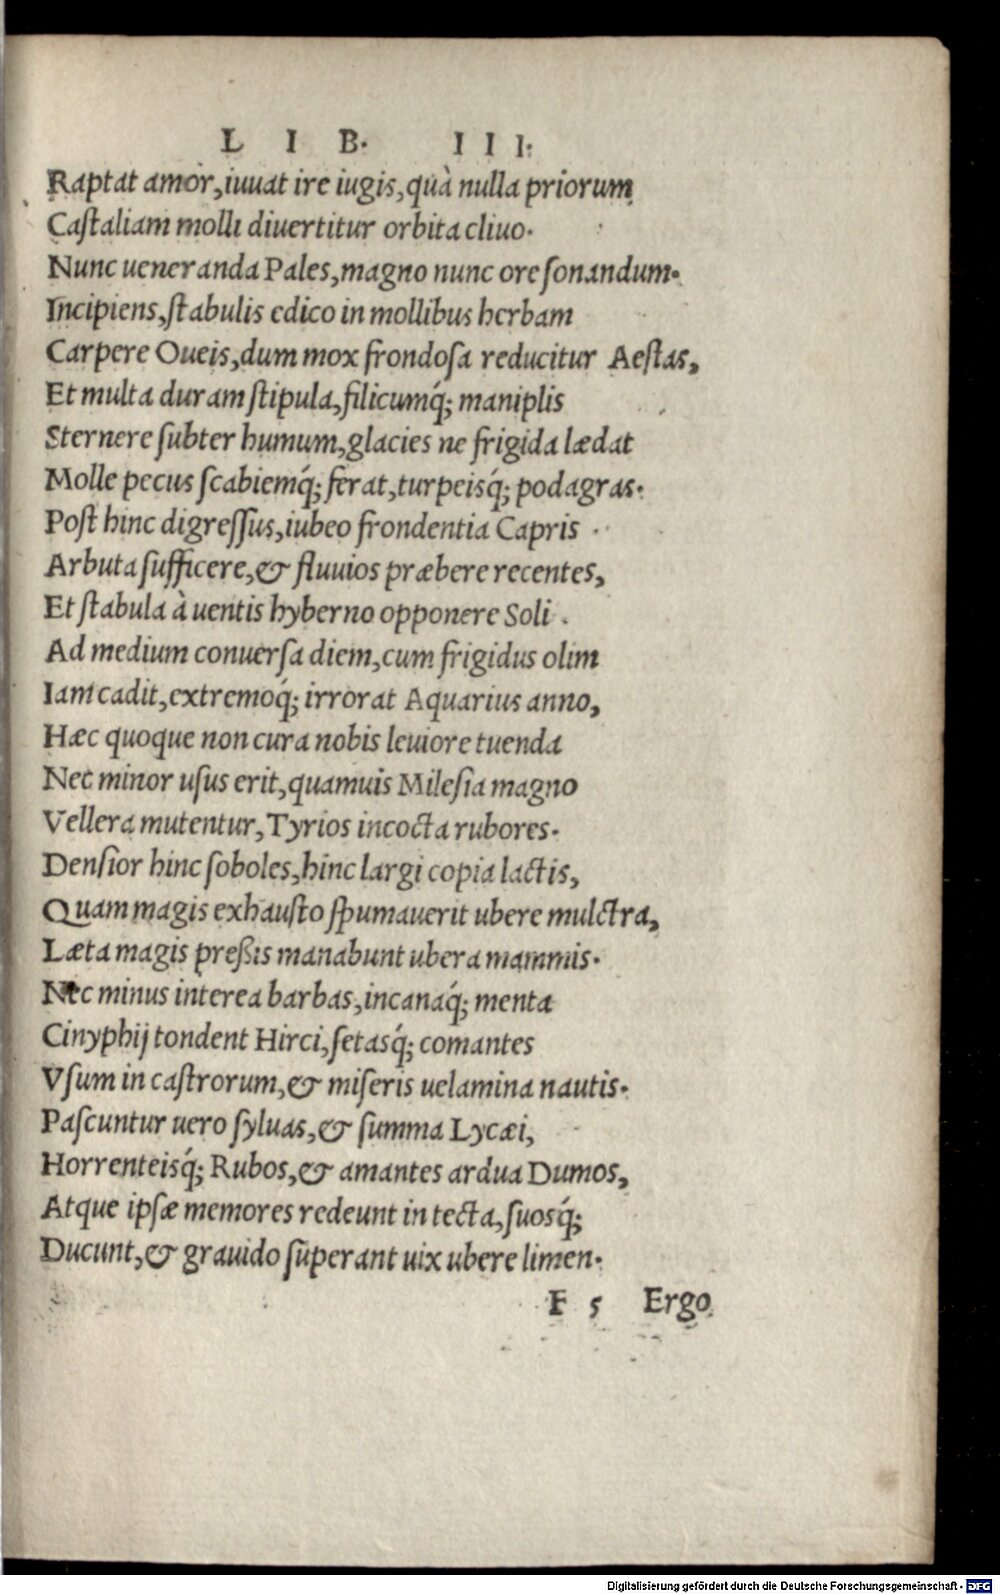 L I B. I I I.
Raptat amor, iuuat ire iugis, quà nulla priorum
Caſtaliam molli diuertitur orbita cliuo.
Nunc ueneranda Pales, magno nunc ore ſonandum.
Incipiens, ſtabulis edico in mollibus herbam
Carpere Oueis, dum mox frondoſa reducitur Aeſtas,
Et multa duram ſtipula, filicumq́; maniplis
Sternere ſubter humum, glacies ne frigida lædat
Molle pecus ſcabiemq́; ferat, turpeisq́; podagras.
Poſt hinc digreſſus, iubeo frondentia Capris
Arbuta ſufficere, & fluuios præbere recentes,
Et ſtabula à uentis hyberno opponere Soli.
Ad medium conuerſa diem, cum frigidus olim
Iam cadit, extremoq́; irrorat Aquarius anno,
Hæc quoque non cura nobis leuiore tuenda
Nec minor uſus erit, quamuis Mileſia magno
Vellera mutentur, Tyrios incocta rubores.
Denſior hinc ſoboles, hinc largi copia lactis,
Quam magis exhauſto ſpumauerit ubere mulctra,
Læta magis preßis manabunt ubera mammis.
Nec minus interea barbas, incanaq́; menta
Cinyphij tondent Hirci, ſetasq́; comantes
Vſum in caſtrorum, & miſeris uelamina nautis.
Paſcuntur uero ſyluas, & ſumma Lycæi,
Horrenteisq́; Rubos, & amantes ardua Dumos,
Atque ipſæ memores redeunt in tecta, ſuosq́;
Ducunt, & grauido ſuperant uix ubere limen.
F 5 Ergo
Digitalisierung gefördert durch die Deutsche Forschungsgemeinschaft - DFG